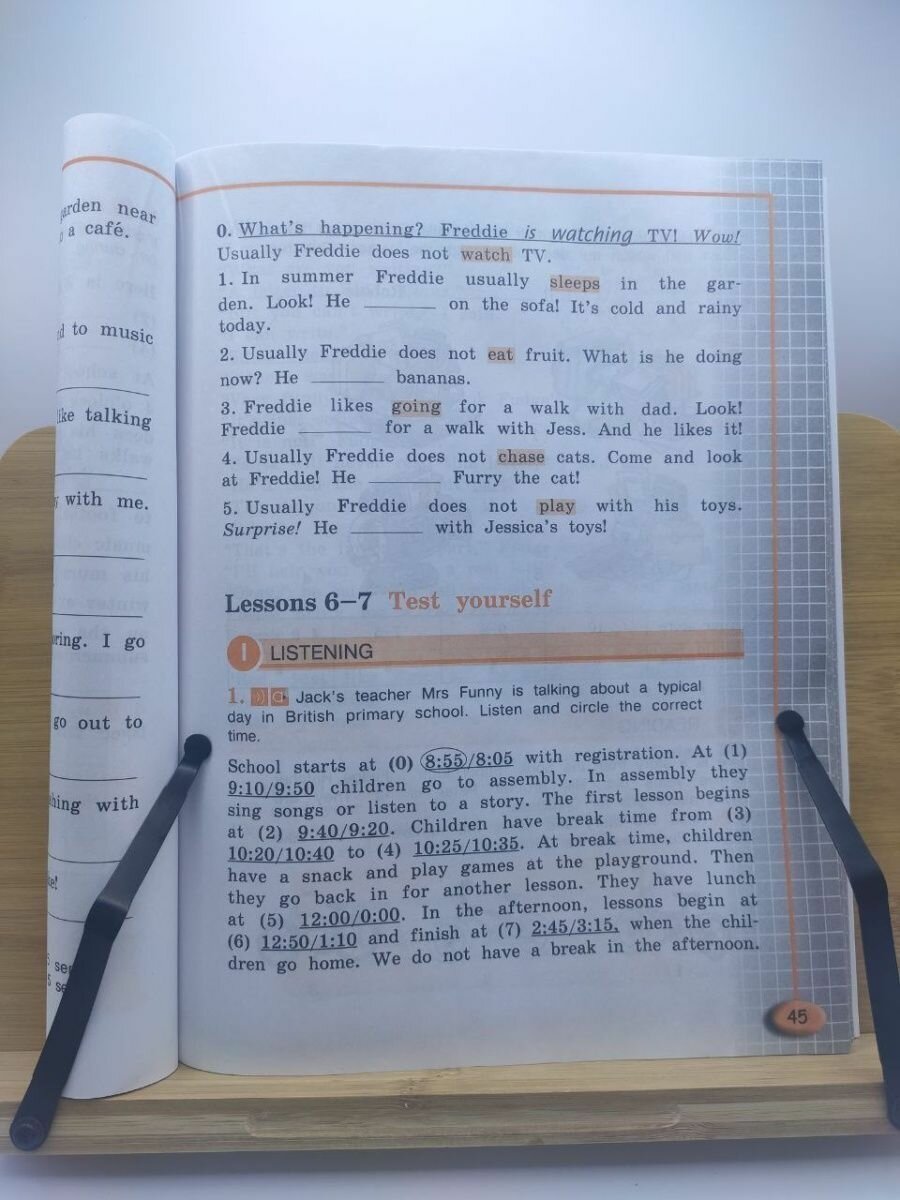 garden near
a café.
to music
like talking
with me.
I go
go out to
with
0. What's happening? Freddie is watching TV! Wow!
Usually Freddie does not watch TV.
1. In summer Freddie usually sleeps in the gar-
den. Look! He ________ on the sofa! It's cold and rainy
today.
2. Usually Freddie does not eat fruit. What is he doing
now? He ________ bananas.
3. Freddie likes going for a walk with dad. Look!
Freddie ________ for a walk with Jess. And he likes it!
4. Usually Freddie does not chase cats. Come and look
at Freddie! He ________ Furry the cat!
5. Usually Freddie does not play with his toys.
Surprise! He ________ with Jessica's toys!
Lessons 6–7 Test yourself
I LISTENING
1. Jack's teacher Mrs Funny is talking about a typical
day in British primary school. Listen and circle the correct
time.
School starts at (0) 8:55/8:05 with registration. At (1)
9:10/9:50 children go to assembly. In assembly they
sing songs or listen to a story. The first lesson begins
at (2) 9:40/9:20. Children have break time from (3)
10:20/10:40 to (4) 10:25/10:35. At break time, children
have a snack and play games at the playground. Then
they go back in for another lesson. They have lunch
at (5) 12:00/0:00. In the afternoon, lessons begin at
(6) 12:50/1:10 and finish at (7) 2:45/3:15, when the chil-
dren go home. We do not have a break in the afternoon.
45